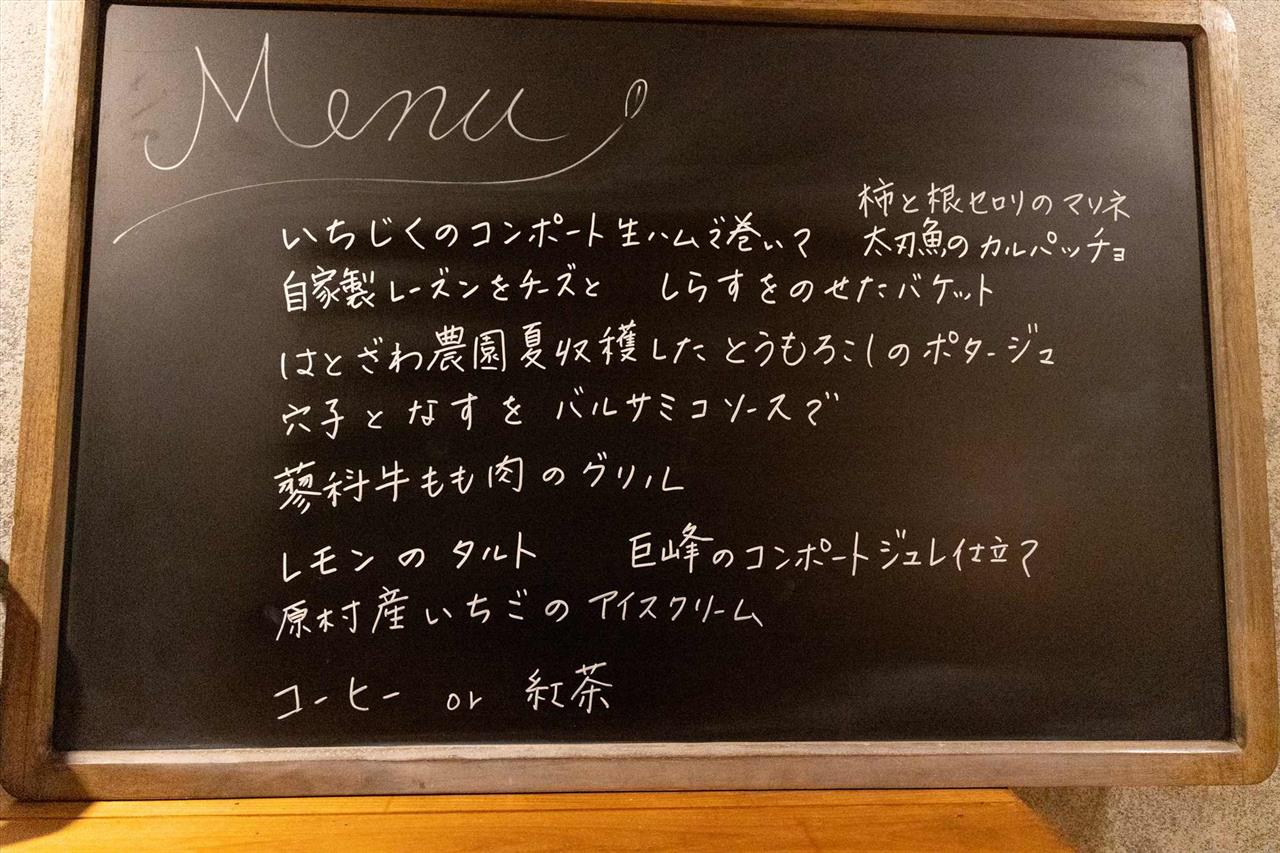 Menu
柿と根セロリのマリネ
いちじくのコンポート生ハムで巻いて 太刀魚のカルパッチョ
自家製レーズンをチーズと しらすをのせたバケット
はとざわ農園夏収穫したとうもろこしのポタージュ
穴子となすを バルサミコソースで
蓼科牛もも肉のグリル
レモンのタルト 巨峰のコンポートジュレ仕立て
原村産いちごのアイスクリーム
コーヒー or 紅茶